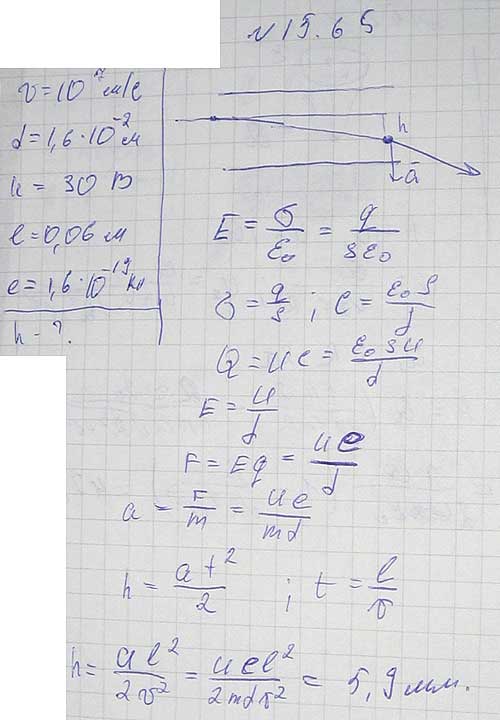 № 15.65
v = 10⁷ м/с
d = 1,6 · 10⁻² м
u = 30 В
l = 0,06 м
e = 1,6 · 10⁻¹⁹ Кл
h - ?
h
a
E = σ/ε₀ = q/sε₀
σ = q/s ; C = ε₀s/d
Q = uC = ε₀su/d
E = u/d
F = Eq = ue/d
a = F/m = ue/md
h = at²/2 ; t = l/v
h = al²/2v² = uel²/2mdv² = 5,9 мм.